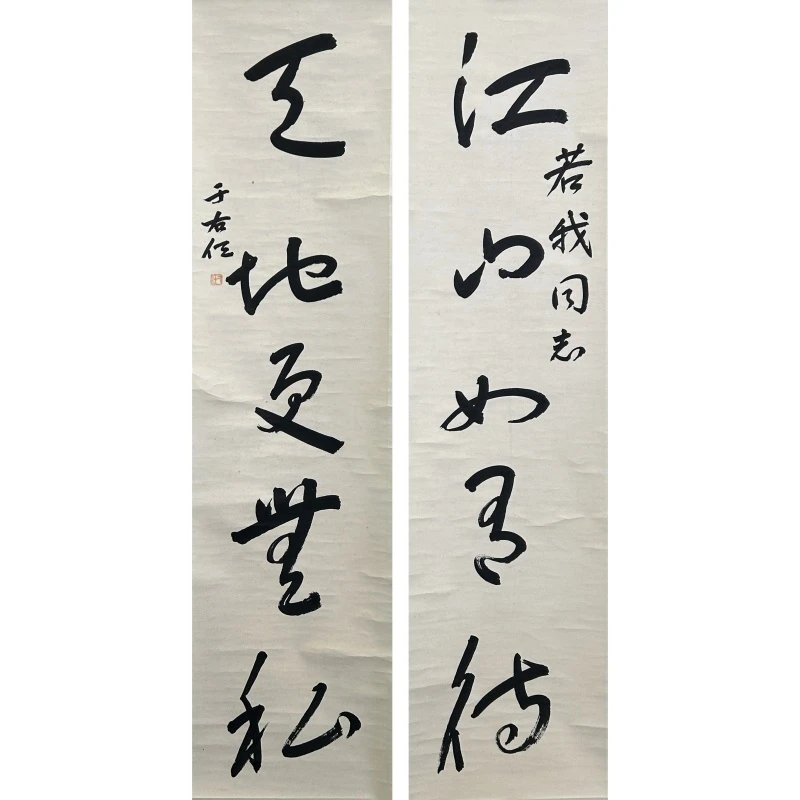 江山如有待
若我同志
天地更無私
于右任